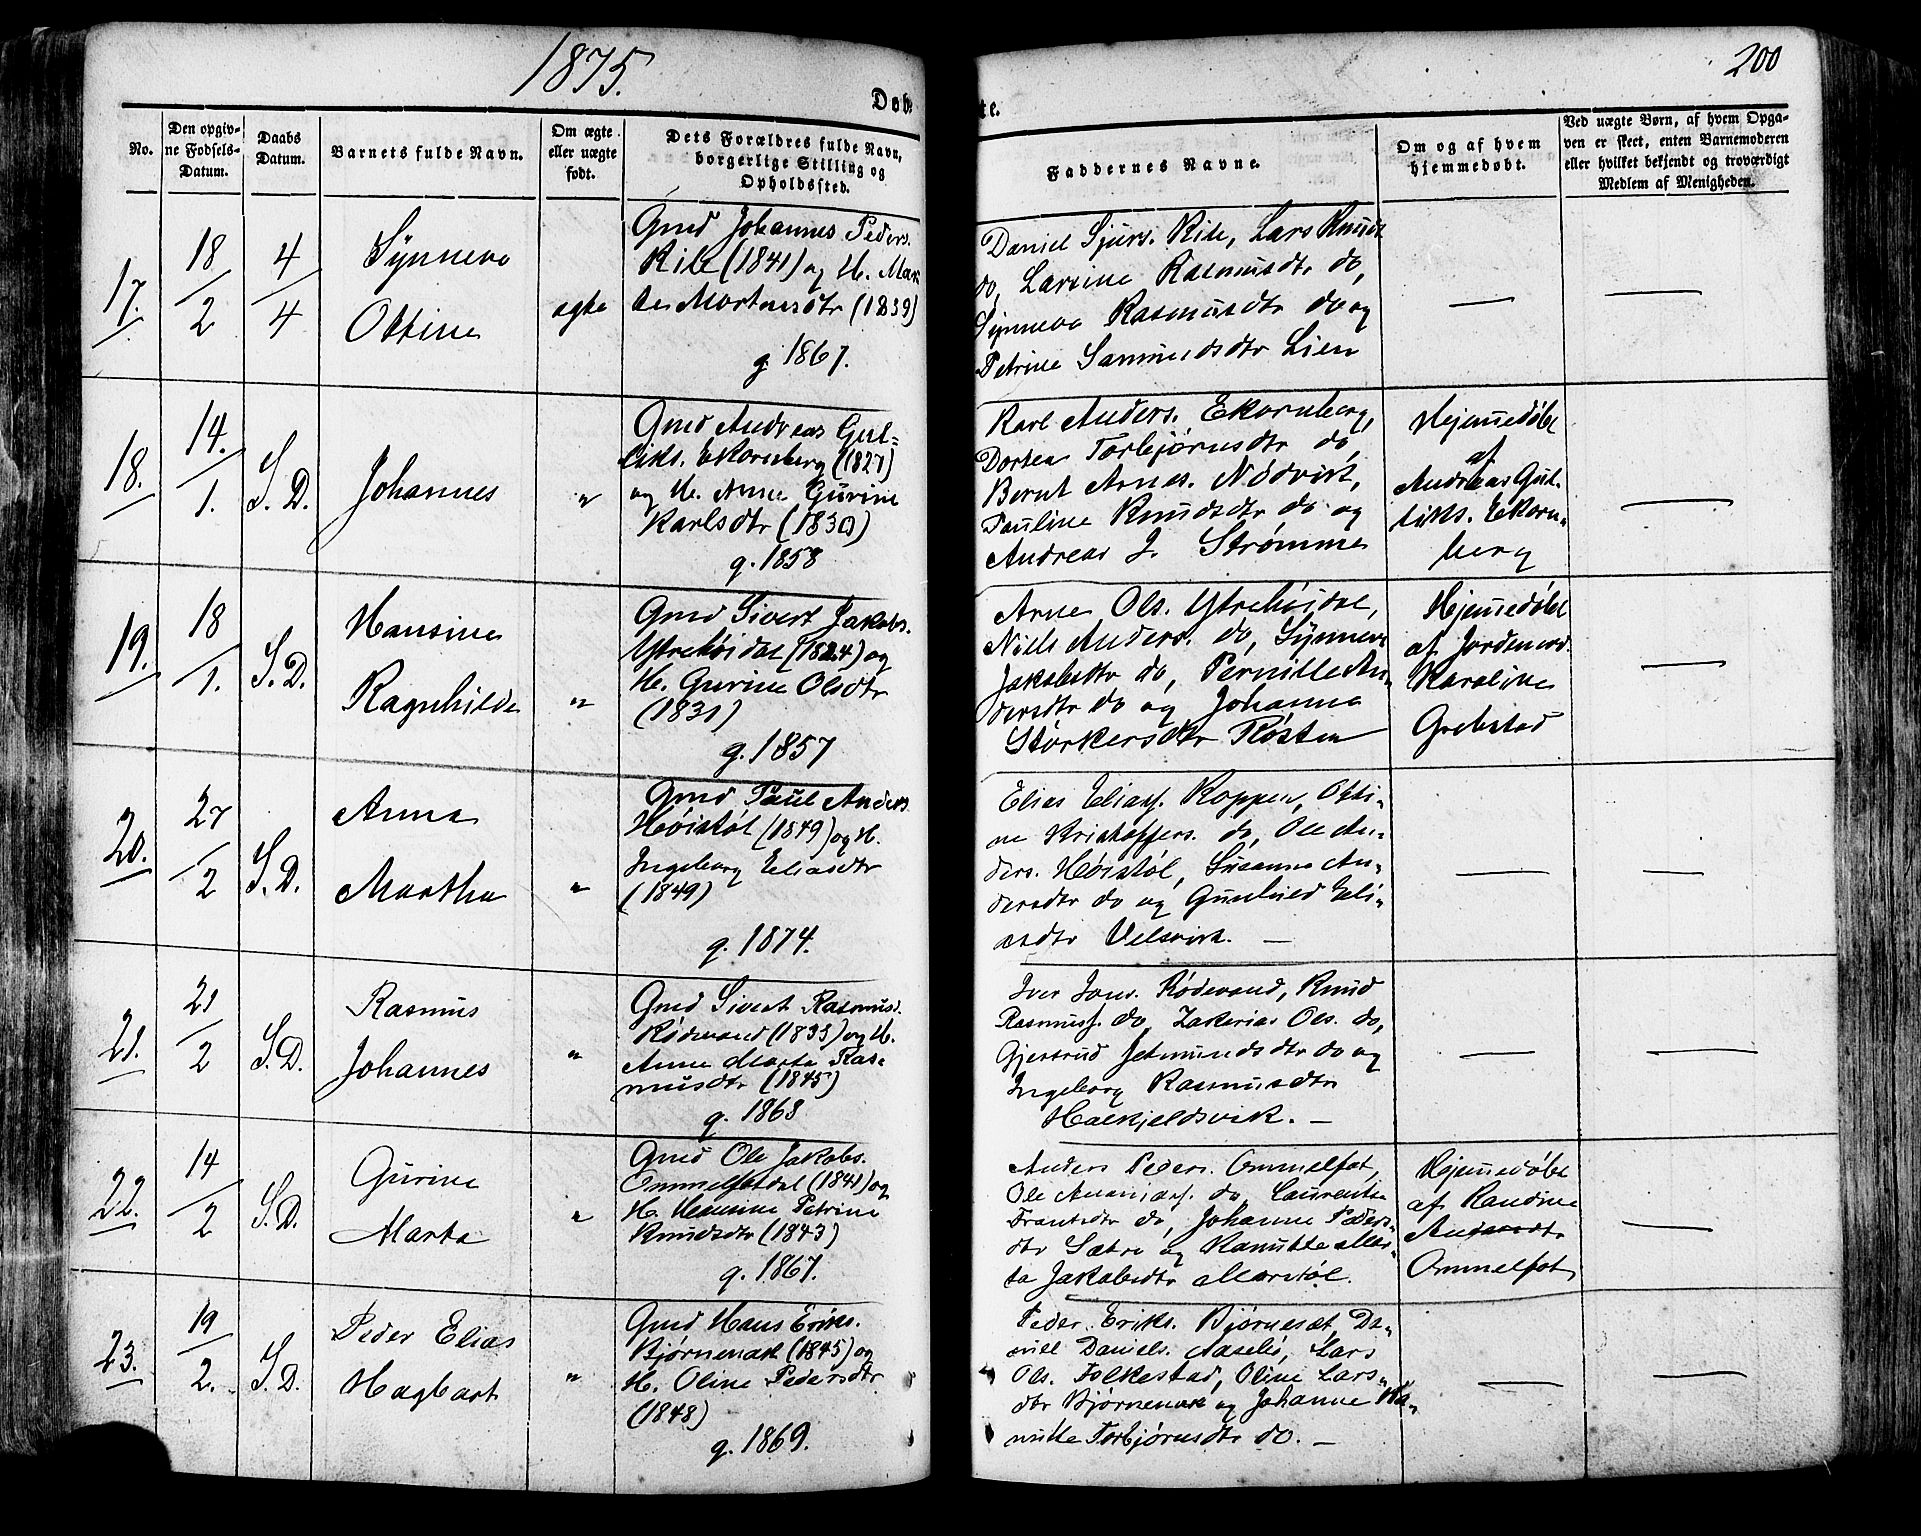 1875.
200
Døbte.
No.
Den opgiv-
ne Fødsels-
Datum.
Daabs
Datum.
Barnets fulde Navn.
Om ægte
eller uægte
født.
Dets Forældres fulde Navn,
borgerlige Stilling og
Opholdssted.
Faddernes Navne.
Om og af hvem
hjemmedøbt.
Ved uægte Børn, af hvem Opga-
ven er skeet, enten Barnemoderen
eller hvilket bekjendt og troværdigt
Medlem af Menigheden.
17.
18/2
4/4
Synneva
Ottine
ægte
Gmd Johannes Peders.
Rite (1841) og H. Mar
Mortensdtr (1839)
g. 1867.
Daniel Sjurs. Rite, Lars Knuds
do, Larsine Rasmusdtr do,
Synneva Rasmusdtr do og
Petrine Samundsdtr Lien
18.
14./1.
S. D.
Johannes
"
Gmd Andreas Gul-
liks. Ekornberg (1827)
og H. Anne Gurine
Karlsdtr (1830)
g. 1858
Karl Anders. Ekornberg,
Dortea Torbjørnsdtr do,
Bernt Arnes. Nødvik,
Pauline Knudsdtr do og
Andreas J. Strømme
Hjemmedøbt
af
Andreas Gul-
liks. Ekorn-
berg
19.
18/1.
S. D.
Hansine
Ragnhilde
"
Gmd Sivert Jakobs.
Ytrehøidal (1824) og
H. Gurine Olsdtr
(1831)
g. 1857
Arne Ols. Ytrehøidal,
Nils Anders. do, Synneve
Jakobsdtr do, Pernille An-
dersdtr do og Johanna
Størkersdtr Røsten
Hjemmedøbt
af Jordemod.
Karoline
Grebstad
20.
27/2
S. D.
Anna
Martha
"
Gmd Paul Anders.
Høistøl (1849) og H.
Ingeborg Eliasdtr
(1849)
g. 1874.
Elias Eliass. Koppen, Otti-
ne Kristoffers. do, Ole An-
ders. Høistøl, Susanne An-
dersdtr do og Gunhild Eli-
asdtr Velsvik.
21.
21/2
S. D.
Rasmus
Johannes
"
Gmd Sivert Rasmus.
Rødvand (1833) og H.
Anne Marta Ras-
musdtr (1845)
g. 1868
Iver Jons. Rødevand, Knud
Rasmuss. do, Zakarias Ols. do,
Gjertrud Jetmundsdtr do og
Ingeborg Rasmusdtr
Halkjeldsvik.
22.
14/2
S. D.
Gurine
Marta
"
Gmd Ole Jakobs.
Ommelfotdal (1841) og
H. Petrine
Knudsdtr (1843)
g. 1867.
Anders Peders. Ommelfot,
Ole Ananiass. do, Laurentse
Frantsdtr do, Johanne Peders-
dtr Sætre og Ranutte Mar-
ta Jakobsdtr Marstøl.
Hjemmedøbt
af Randine
Andersdtr
Ommelfot
23.
19/2.
S. D.
Peder Elias
Hagbart
"
Gmd Hans Eriks.
Bjørnenak (1845) og
H. Oline Pedersdtr
(1848)
g. 1869.
Peder Eriks. Bjørneset, Da-
niel Daniels. Aasebø, Lars
Ols. Folkestad, Oline Lars-
dtr Bjørnenak og Johanne Ra-
nutte Torbjørnsdtr do.